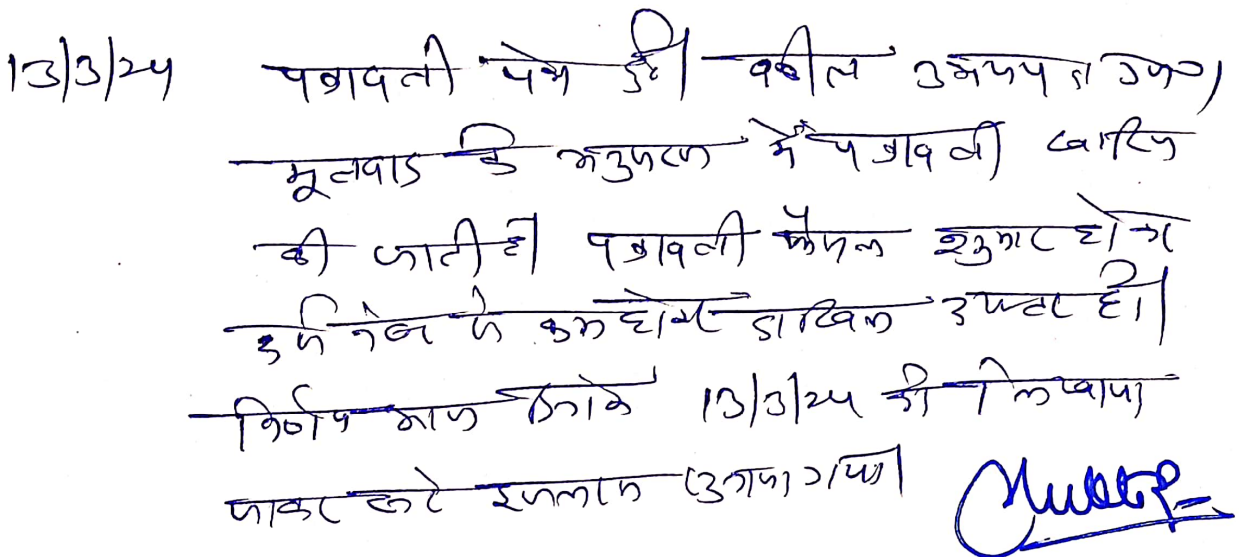 13/3/24 पत्रावली पेश हुई। वकील उभयपक्ष उप०।
मूलवाद के अनुसरण में पत्रावली खारिज
की जाती है। पत्रावली फैसल शुमार होकर
दर्ज नंबर से कम होकर दाखिल दफ्तर हो।
निर्णय आज दिनांक 13/3/24 को लिखाया
जाकर खुले इजलास सुनाया गया।